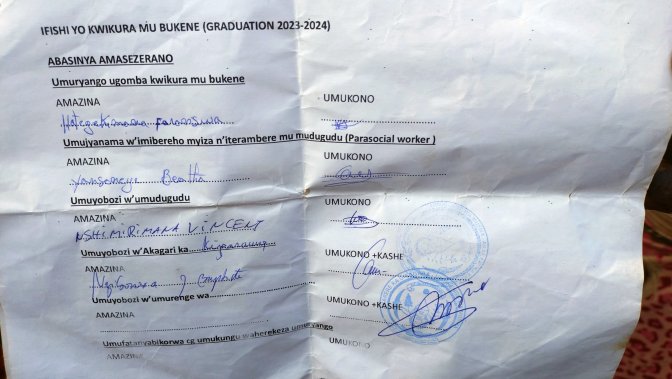 IFISHI YO KWIKURA MU BUKENE (GRADUATION 2023-2024)
ABASINYA AMASEZERANO
Umuryango ugomba kwikura mu bukene
AMAZINA UMUKONO
Umujyanama w'imibereho myiza n'iterambere mu mudugudu (Parasocial worker )
AMAZINA UMUKONO
Beatha
Umuyobozi w'umudugudu
AMAZINA UMUKONO
NSHIMIRIMANA VINCENT
Umuyobozi w'Akagari ka
UMUKONO +KASHE
AMAZINA
Umuyobozi w'umurenge wa
UMUKONO +KASHE
AMAZINA
Umufatanyabikorwa cg umukungu waherekeza umuryango
AMAZINA UMUKONO